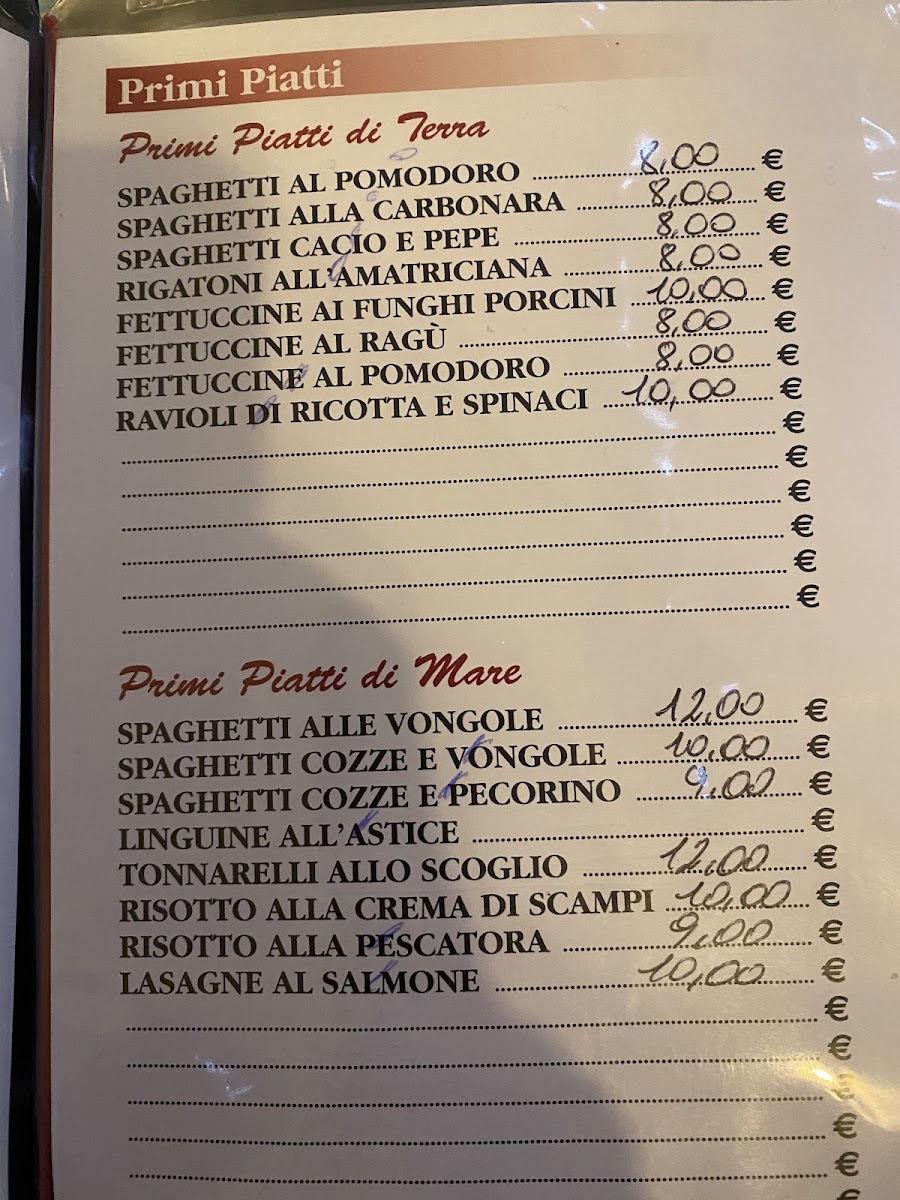 Primi Piatti
Primi Piatti di Terra
SPAGHETTI AL POMODORO ........ 8,00 €
SPAGHETTI ALLA CARBONARA ........ 8,00 €
SPAGHETTI CACIO E PEPE ........ 8,00 €
RIGATONI ALL'AMATRICIANA ........ 8,00 €
FETTUCCINE AI FUNGHI PORCINI ........ 10,00 €
FETTUCCINE AL RAGÙ ........ 8,00 €
FETTUCCINE AL POMODORO ........ 8,00 €
RAVIOLI DI RICOTTA E SPINACI ........ 10,00 €
........ €
........ €
........ €
........ €
........ €
........ €
Primi Piatti di Mare
SPAGHETTI ALLE VONGOLE ........ 12,00 €
SPAGHETTI COZZE E VONGOLE ........ 10,00 €
SPAGHETTI COZZE E PECORINO ........ 9,00 €
LINGUINE ALL'ASTICE ........ €
TONNARELLI ALLO SCOGLIO ........ 12,00 €
RISOTTO ALLA CREMA DI SCAMPI ........ 10,00 €
RISOTTO ALLA PESCATORA ........ 9,00 €
LASAGNE AL SALMONE ........ 10,00 €
........ €
........ €
........ €
........ €
........ €
€